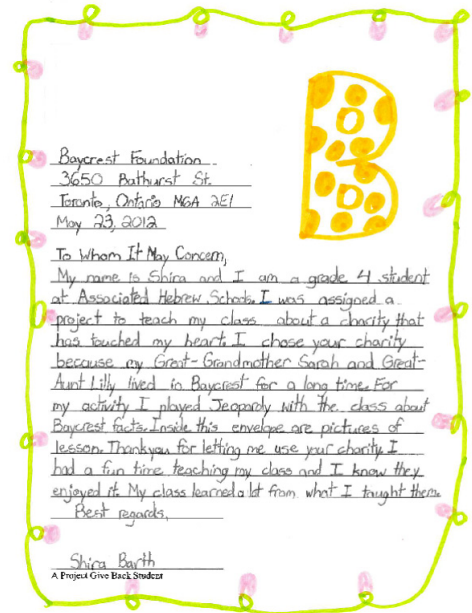 B
Baycrest Foundation
3650 Bathurst St.
Toronto, Ontario M6A 2E1
May 23, 2012
To Whom It May Concern,
My name is Shira and I am a grade 4 student
at Associated Hebrew Schools. I was assigned a
project to teach my class about a charity that
has touched my heart. I chose your charity
because my Great-Grandmother Sarah and Great-
Aunt Lilly lived in Baycrest for a long time. For
my activity I played Jeopardy with the class about
Baycrest facts. Inside this envelope are pictures of
lesson. Thankyou for letting me use your charity. I
had a fun time teaching my class and I know they
enjoyed it. My class learned a lot from what I taught them.
Best regards,
Shira Barth
A Project Give Back Student